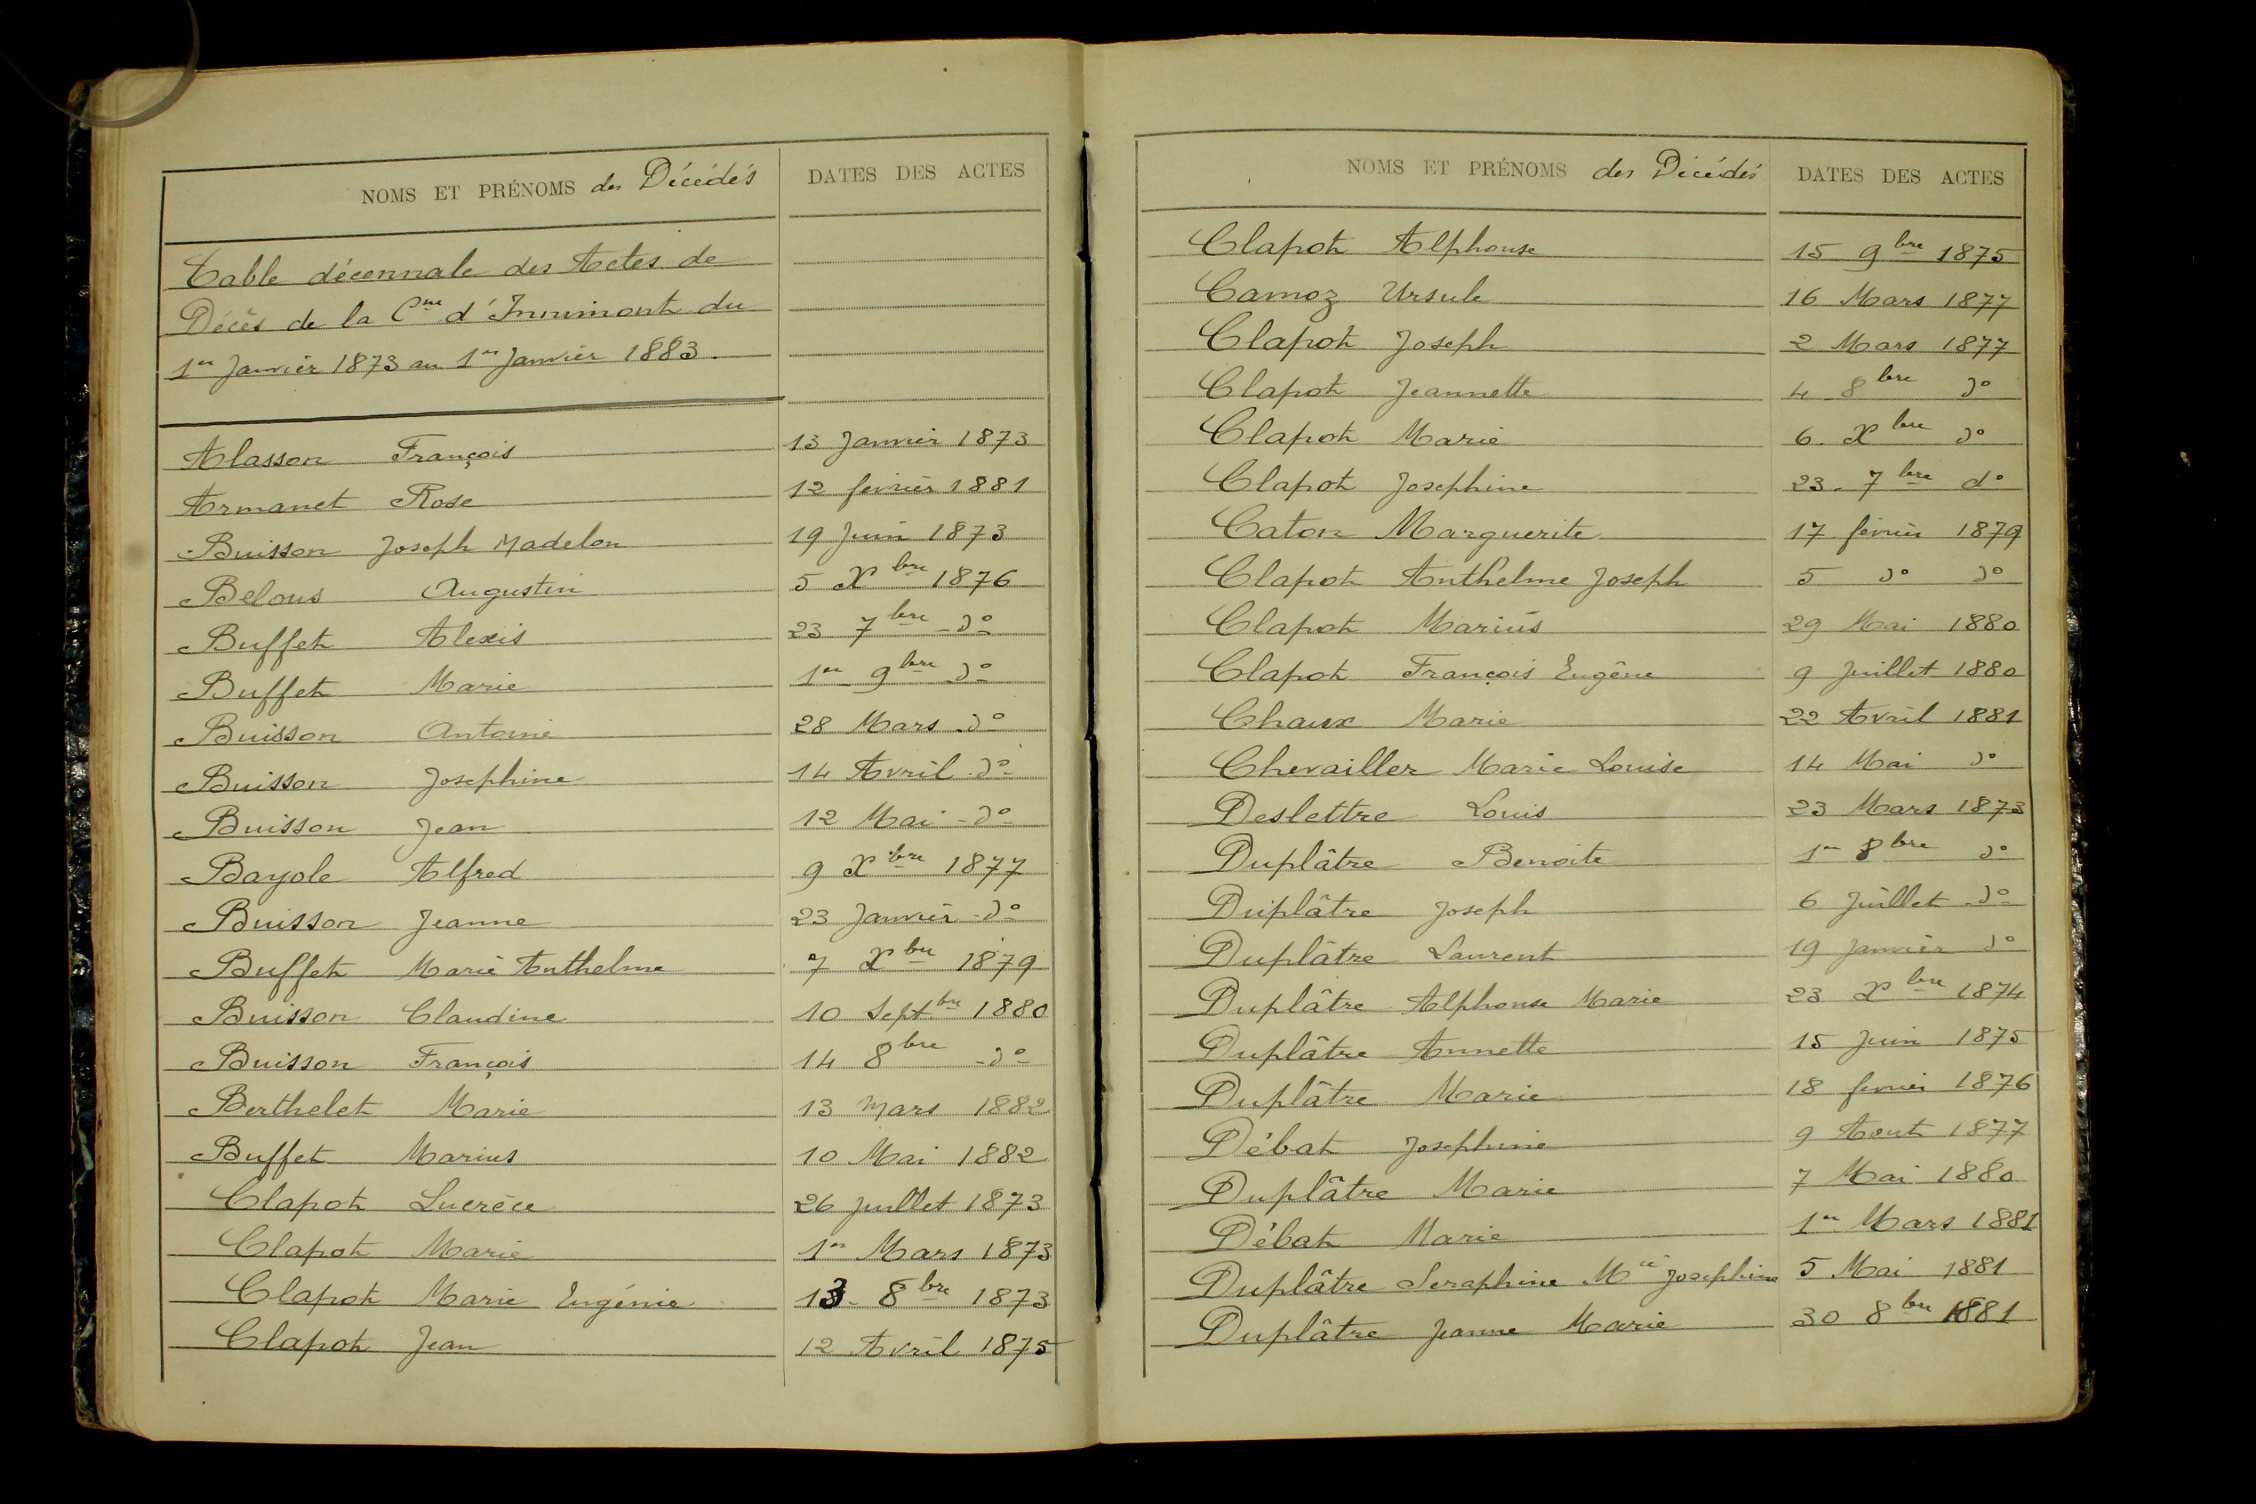 NOMS ET PRÉNOMS des Décédés DATES DES ACTES
Table décennale des Actes de
Décès de la Cne d'Innimont du
1er Janvier 1873 au 1er Janvier 1883.
Alasson François 13 Janvier 1873
Armanet Rose 12 février 1881
Buisson Joseph Madelon 19 Juin 1873
Belous Augustin 5 Xbre 1876
Buffet Alexis 23 7bre - do -
Buffet Marie 1er 9bre do -
Buisson Antoine 28 Mars - do
Buisson Josephine 14 Avril - do -
Buisson Jean 12 Mai - do -
Bayole Alfred 9 Xbre 1877
Buisson Jeanne 23 Janvier - do -
Buffet Marie Anthelme 7 Xbre 1879
Buisson Claudine 10 Septbre 1880
Buisson François 14 8bre - do -
Berthelet Marie 13 Mars 1882
Buffet Marius 10 Mai 1882
Clapot Lucrèce 26 Juillet 1873
Clapot Marie 1er Mars 1873
Clapot Marie Eugénie 13 - 8bre 1873
Clapot Jean 12 Avril 1875
NOMS ET PRÉNOMS des Décédés DATES DES ACTES
Clapot Alphonse 15 9bre 1875
Camoz Ursule 16 Mars 1877
Clapot Joseph 2 Mars 1877
Clapot Jeannette 4 8bre do
Clapot Marie 6. Xbre do
Clapot Josephine 23 - 7bre do
Caton Marguerite 17 février 1879
Clapot Anthelme Joseph 5 do do
Clapot Marius 29 Mai 1880
Clapot François Eugêne 9 Juillet 1880
Chaux Marie 22 Avril 1881
Chevailler Marie Louise 14 Mai do
Deslettre Louis 23 Mars 1873
Duplâtre Benoite 1er 8bre do
Duplâtre Joseph 6 Juillet - do -
Duplâtre Laurent 19 Janvier do
Duplâtre Alphonse Marie 23 Xbre 1874
Duplâtre Annette 15 Juin 1875
Duplâtre Marie 18 fevrier 1876
Débat Josephine 9 Aout 1877
Duplâtre Marie 7 Mai 1880
Débat Marie 1er Mars 1881
Duplâtre Seraphine Mie Josephine 5 Mai 1881
Duplâtre Jeanne Marie 30 8bre 1881